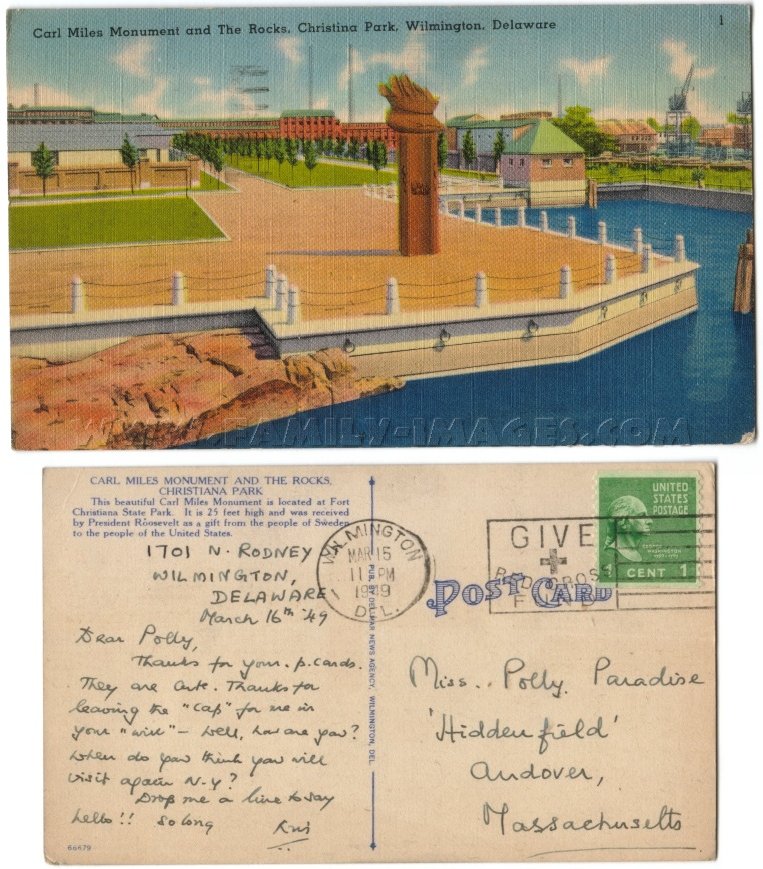 Carl Miles Monument and The Rocks, Christina Park, Wilmington, Delaware
1
WWW.FAMILY-IMAGES.COM
CARL MILES MONUMENT AND THE ROCKS,
CHRISTIANA PARK
This beautiful Carl Miles Monument is located at Fort
Christiana State Park. It is 25 feet high and was received
by President Roosevelt as a gift from the people of Sweden
to the people of the United States.
1701 N. RODNEY
WILMINGTON,
DELAWARE
March 16th '49
Dear Polly,
Thanks for your p.cards.
They are cute. Thanks for
leaving the "cap" for me in
your "will" – well, how are you?
When do you think you will
visit again N.Y?
Drop me a line to say
hello!! so long
Kris
66679
PUB. BY DELMAR NEWS AGENCY, WILMINGTON, DEL.
WILMINGTON
MAR 15
11 PM
1949
DEL.
GIVE
RED CROSS
FUND
UNITED
STATES
POSTAGE
GEORGE
WASHINGTON
1789-1797
1 CENT 1
POST CARD
Miss. Polly. Paradise
'Hiddenfield'
Andover,
Massachusetts